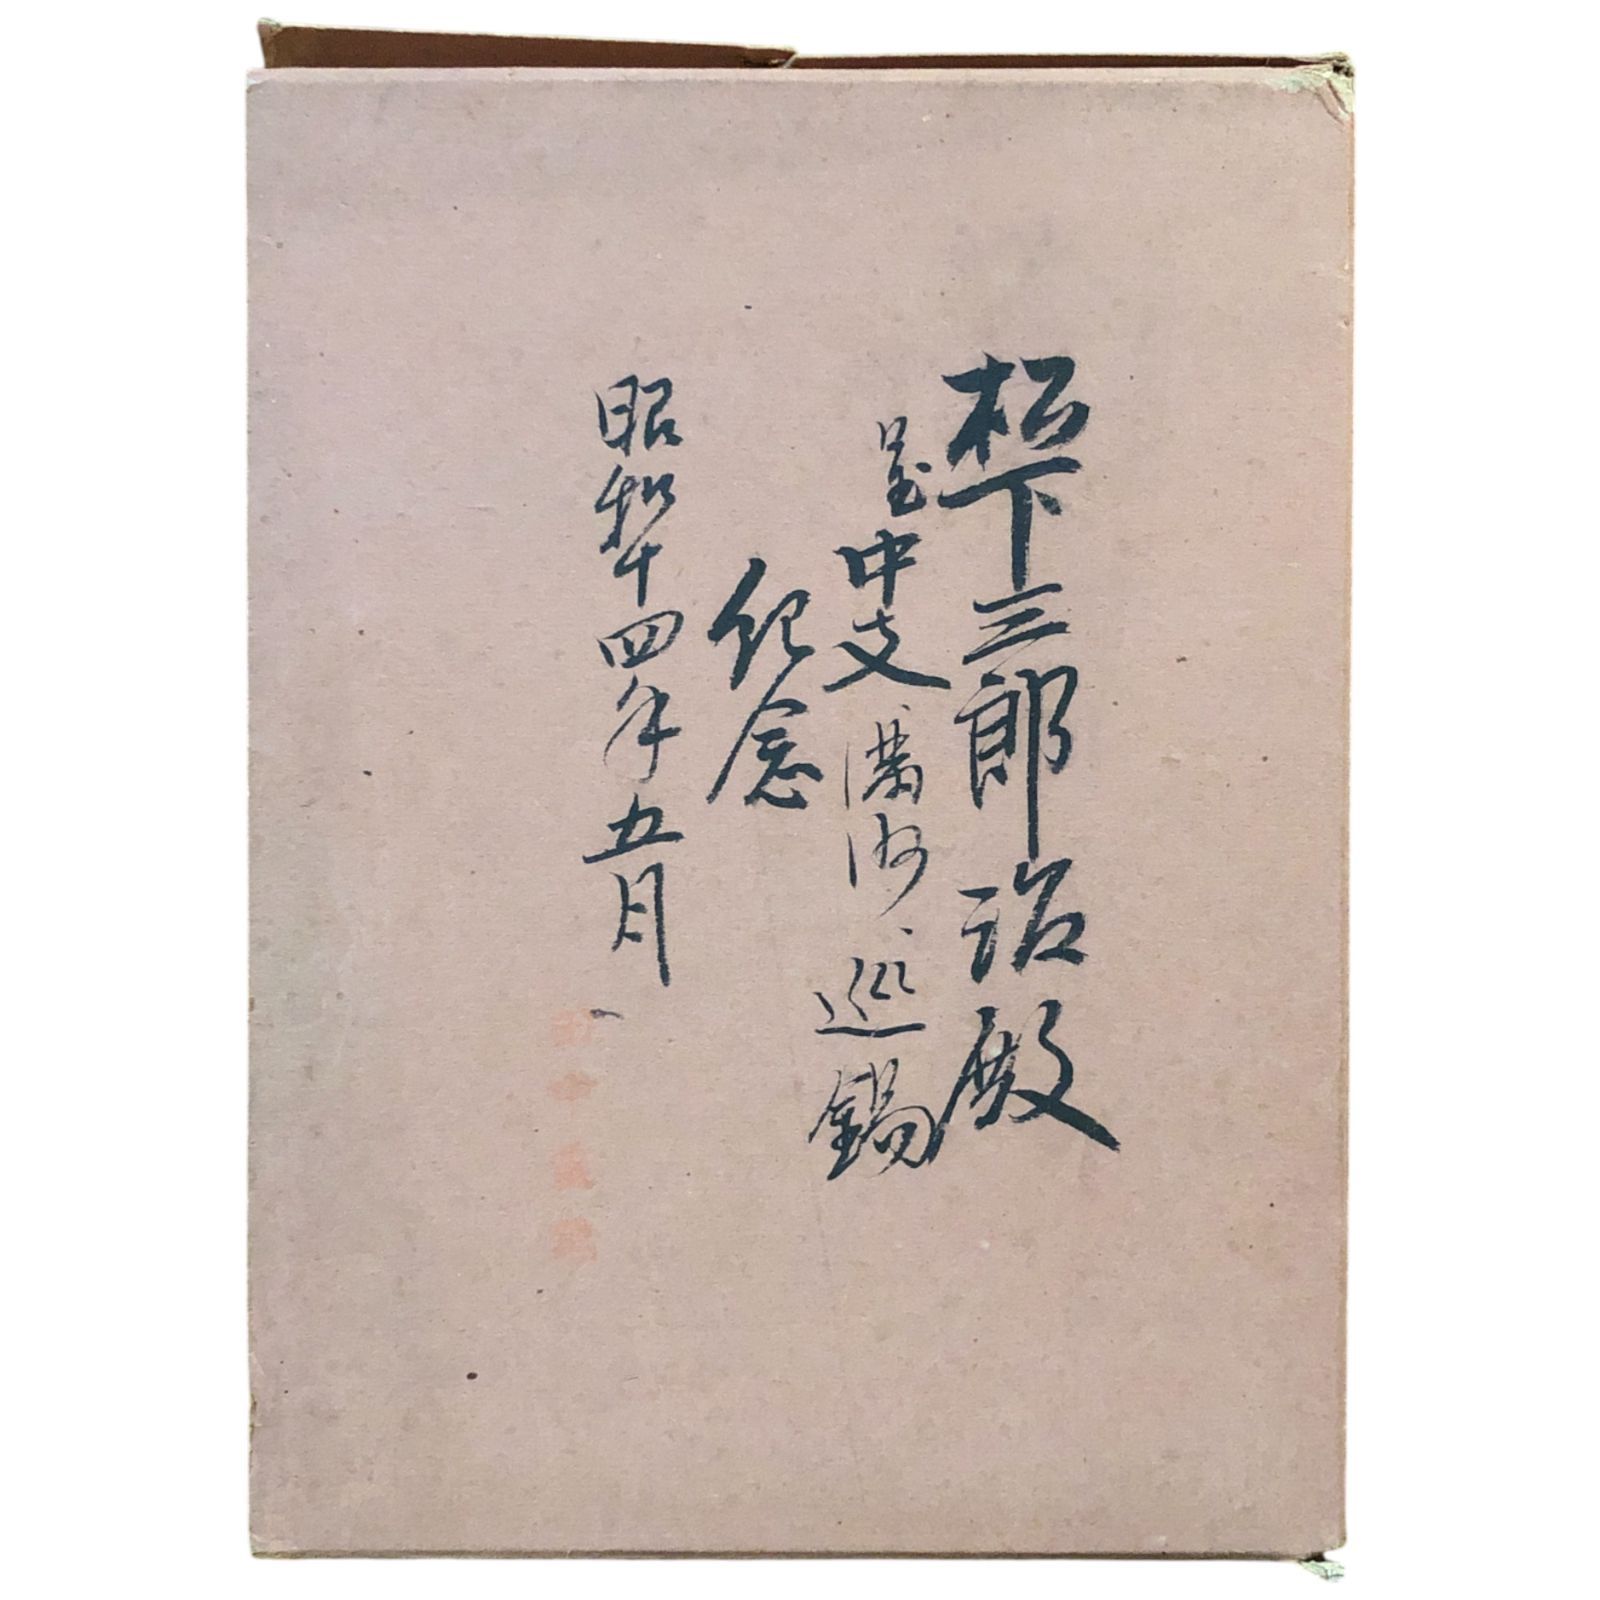 松下三郎治殿
呈中支、満洲、巡錫
紀念
昭和十四年五月